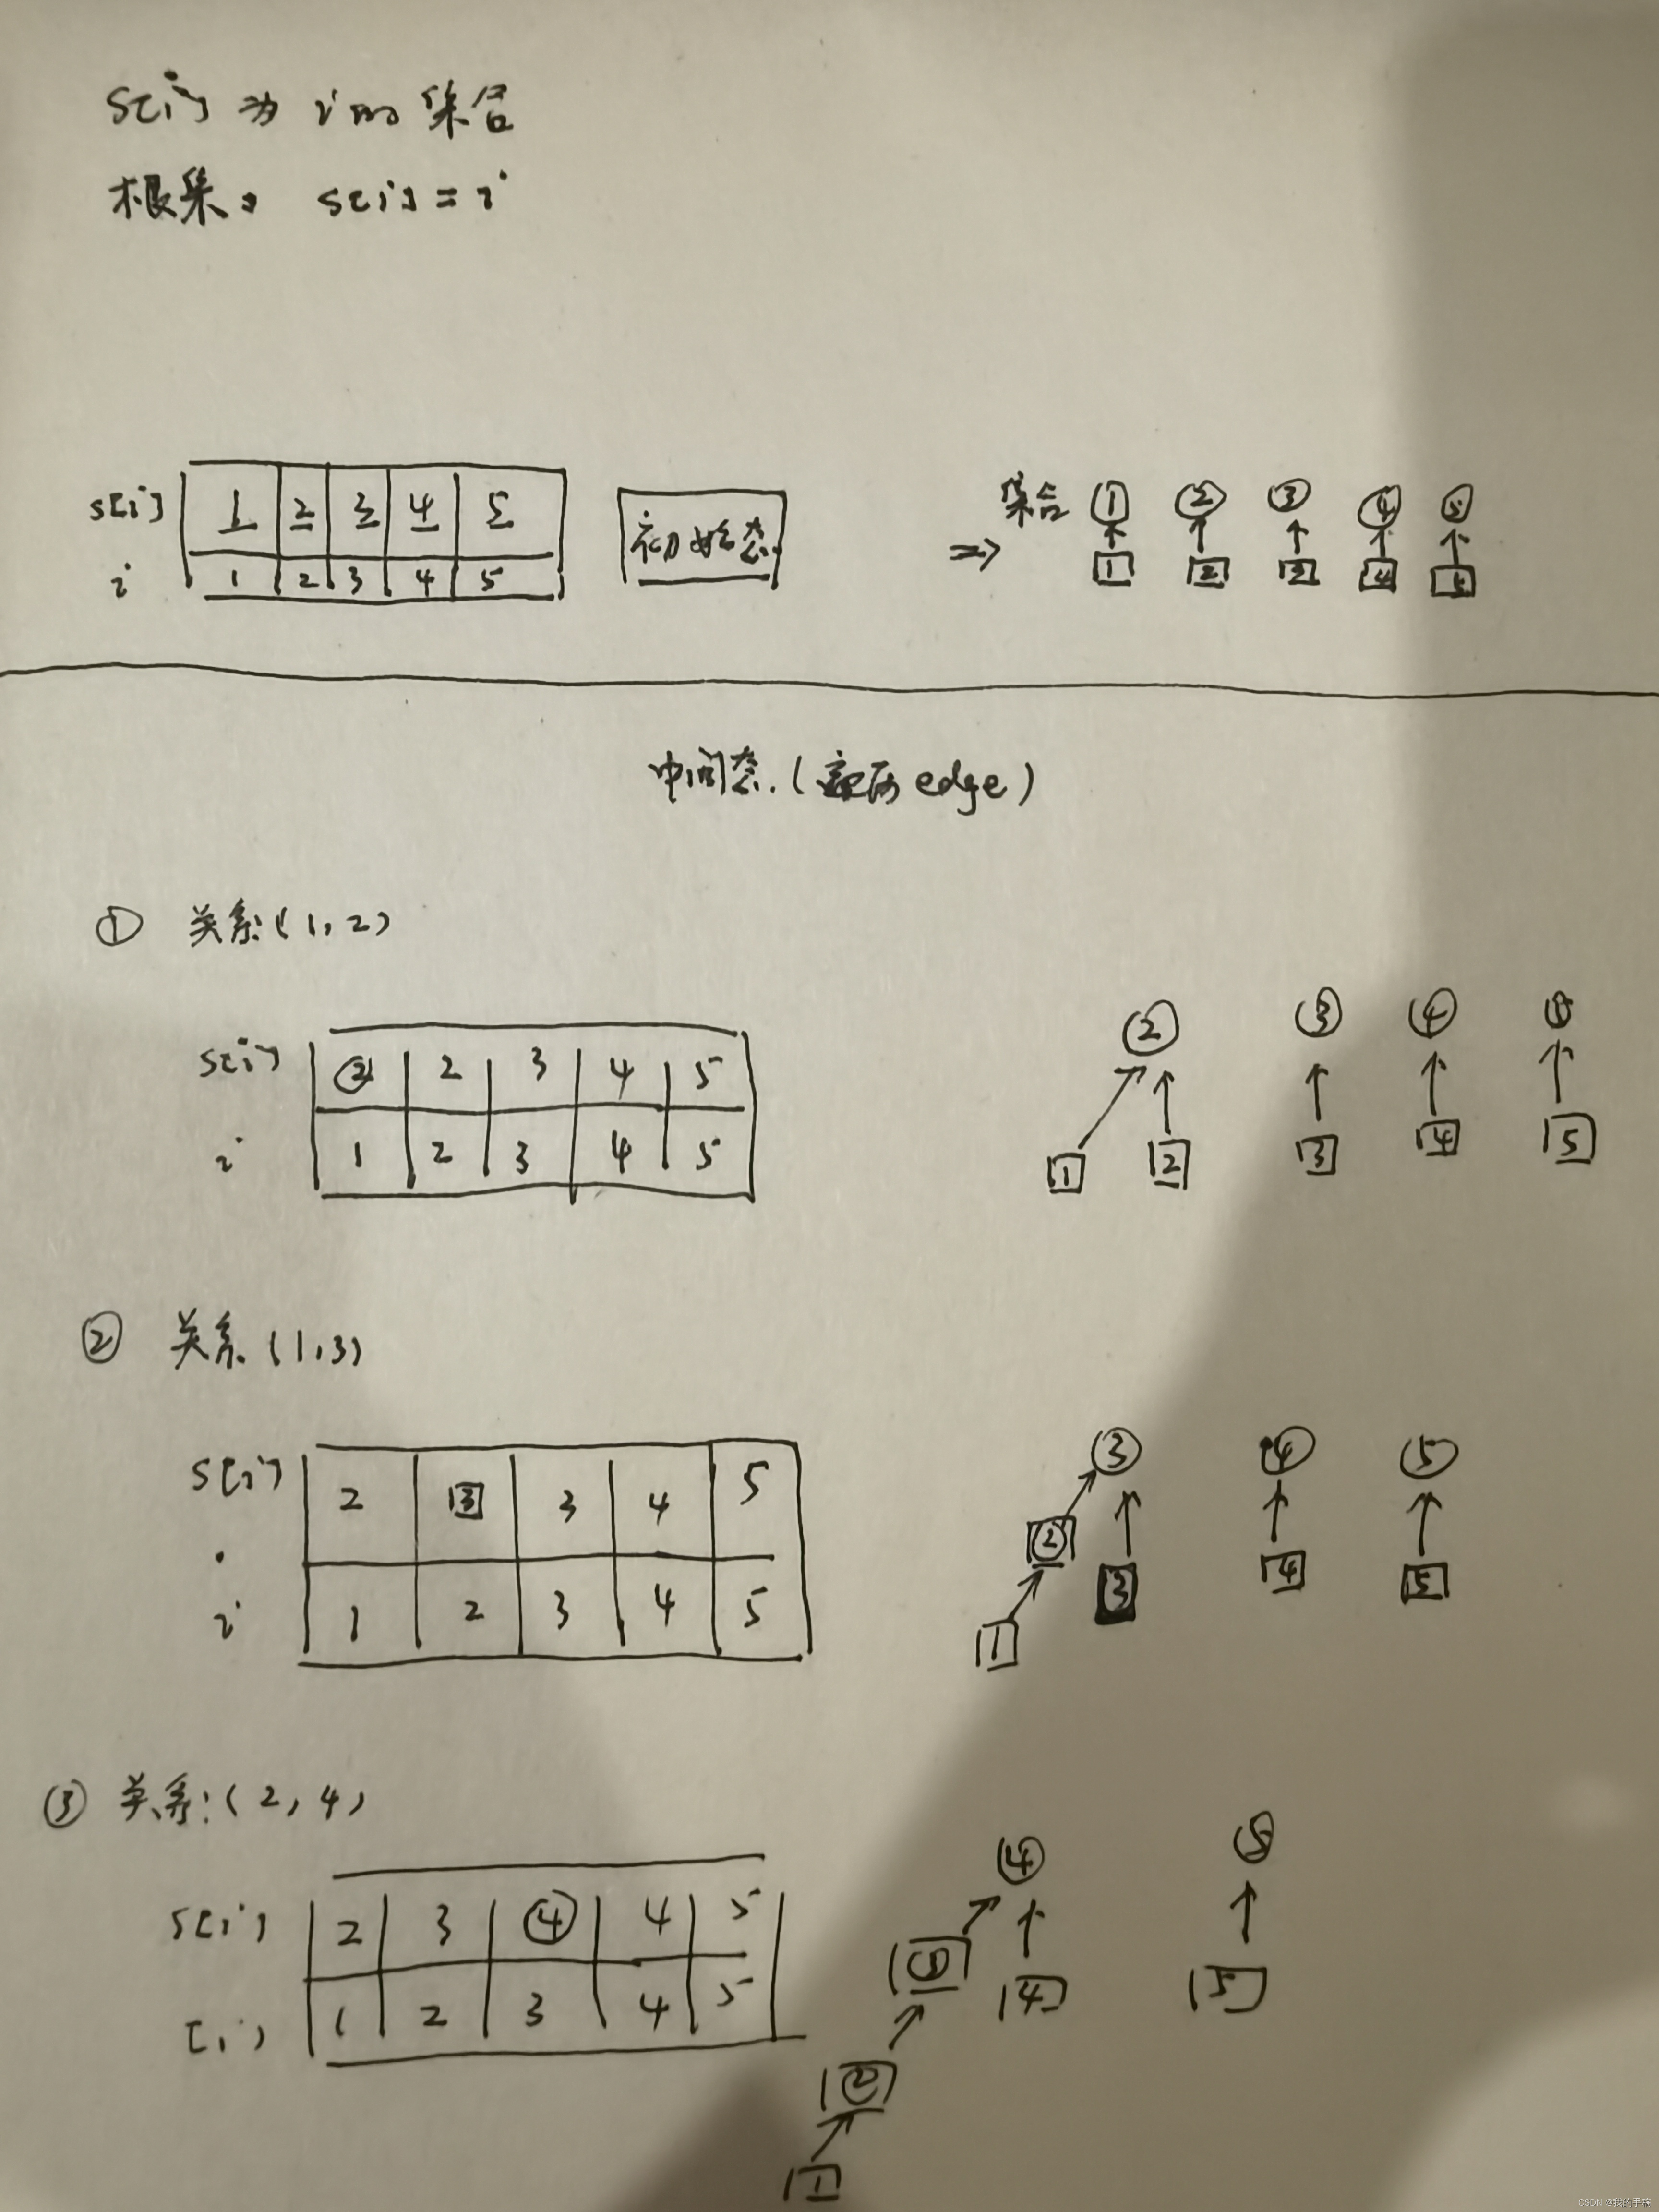 s[i] 为 i 的 集合
根集。 s[i] = i
s[i] 1 2 3 4 5
i 1 2 3 4 5
初始态
=> 集合 ① ② ③ ④ ⑤
1 2 3 4 5
中间态.(遍历 edge)
① 关系:(1,2)
s[i] ② 2 3 4 5
i 1 2 3 4 5
② ③ ④
1 2 3 4 5
② 关系(1,3)
s[i] 2 3 3 4 5
i 1 2 3 4 5
③ ④ ⑤
② 3 4 5
1
③ 关系:(2,4)
s[i] 2 3 ④ 4 5
[i] 1 2 3 4 5
④ ⑤
③ 4 5
②
1
CSDN @我的手稿